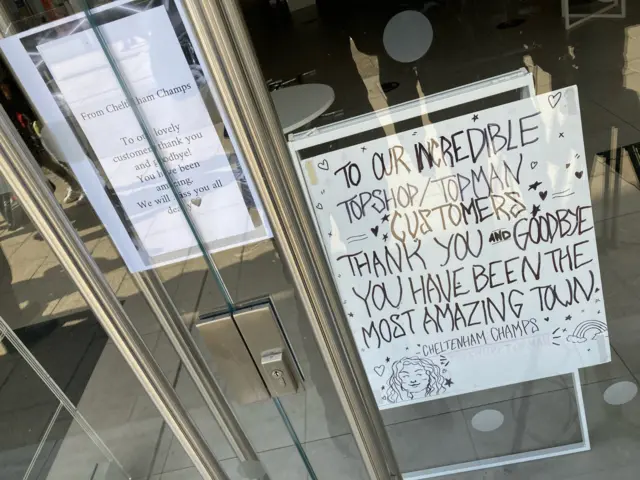 From Cheltenham Champs
To our lovely
customers thank you
and goodbye!
You have been
amazing.
We will miss you all
dearly
TO OUR INCREDIBLE
TOPSHOP/TOPMAN
CUSTOMERS
THANK YOU AND GOODBYE
YOU HAVE BEEN THE
MOST AMAZING TOWN.
CHELTENHAM CHAMPS